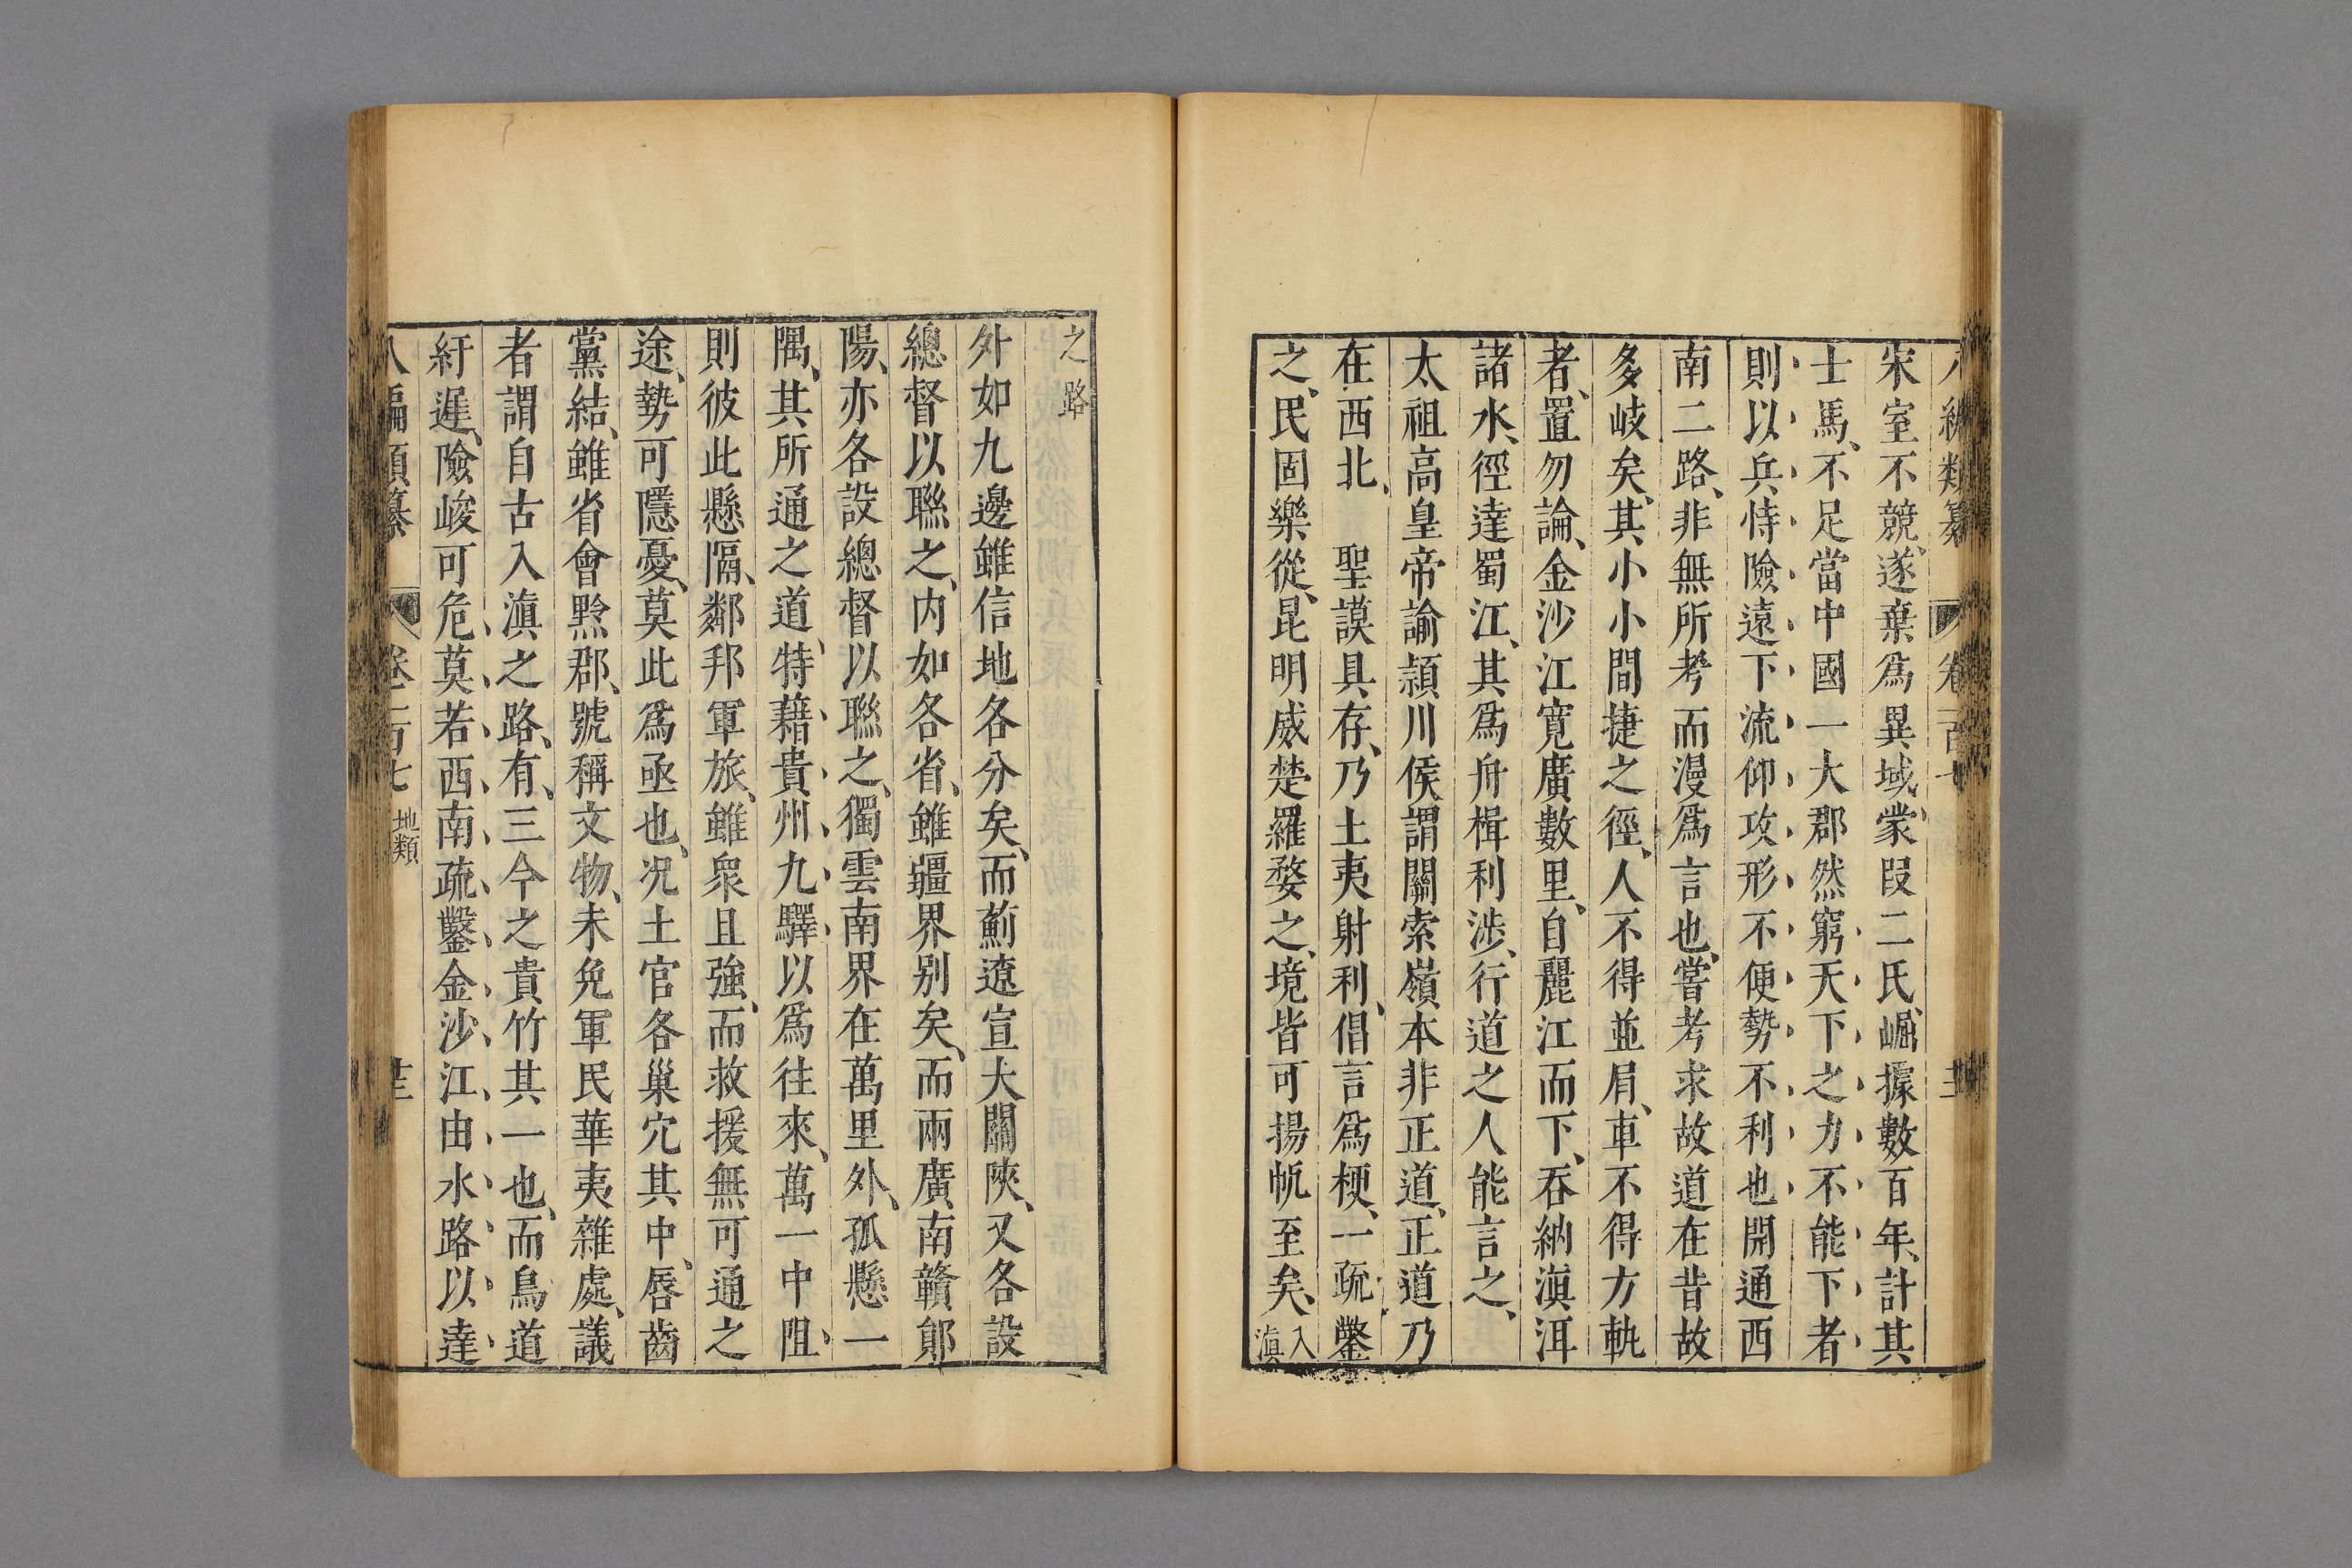 宋室不競、遂棄為異域、蒙段二氏、崛據數百年、計其
士馬、不足當中國一大郡然窮天下之力不能下者
則以兵恃險遠下流仰攻形不便勢不利也開通西
南二路、非無所考而漫為言也、嘗考求故道在昔故
多岐矣、其小小間捷之徑、人不得並肩、車不得方軌
者、置勿論、金沙江寬廣數里、自麗江而下、吞納滇洱
諸水、徑達蜀江、其為舟楫利涉、行道之人能言之、
太祖高皇帝諭頴川侯謂關索嶺本非正道、正道乃
在西北、　聖謨具存、乃土夷射利、倡言為梗、一疏鑿
之、民固樂從、昆明威楚羅婺之、境皆可揚帆至矣、入滇
之路
外如九邊雖信地各分矣、而薊遼宣大關陝、又各設
總督以聯之、内如各省、雖疆界别矣、而兩廣、南贛鄖
陽、亦各設總督以聯之、獨雲南界在萬里外、孤懸一
隅、其所通之道、特藉貴州九驛以為往來、萬一中阻、
則彼此懸隔、鄰邦軍旅、雖衆且強、而救援無可通之
途、勢可隱憂、莫此為亟也、况土官各巢穴其中、唇齒
黨結、雖省會黔郡、號稱文物、未免軍民華夷雜處、議
者謂自古入滇之路、有、三今之貴竹其一也、而鳥道
紆遲、險峻可危、莫若西南疏鑿金沙江由水路以達
八編類纂　卷一百七　地類